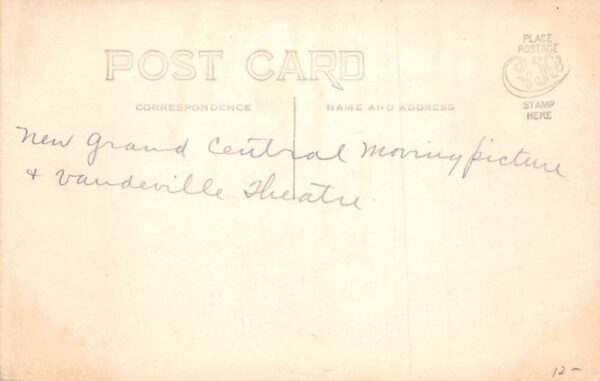 POST CARD
PLACE
POSTAGE
STAMP
HERE
CORRESPONDENCE
NAME AND ADDRESS
New Grand Central Moving picture
+ Vaudeville Theatre
12-